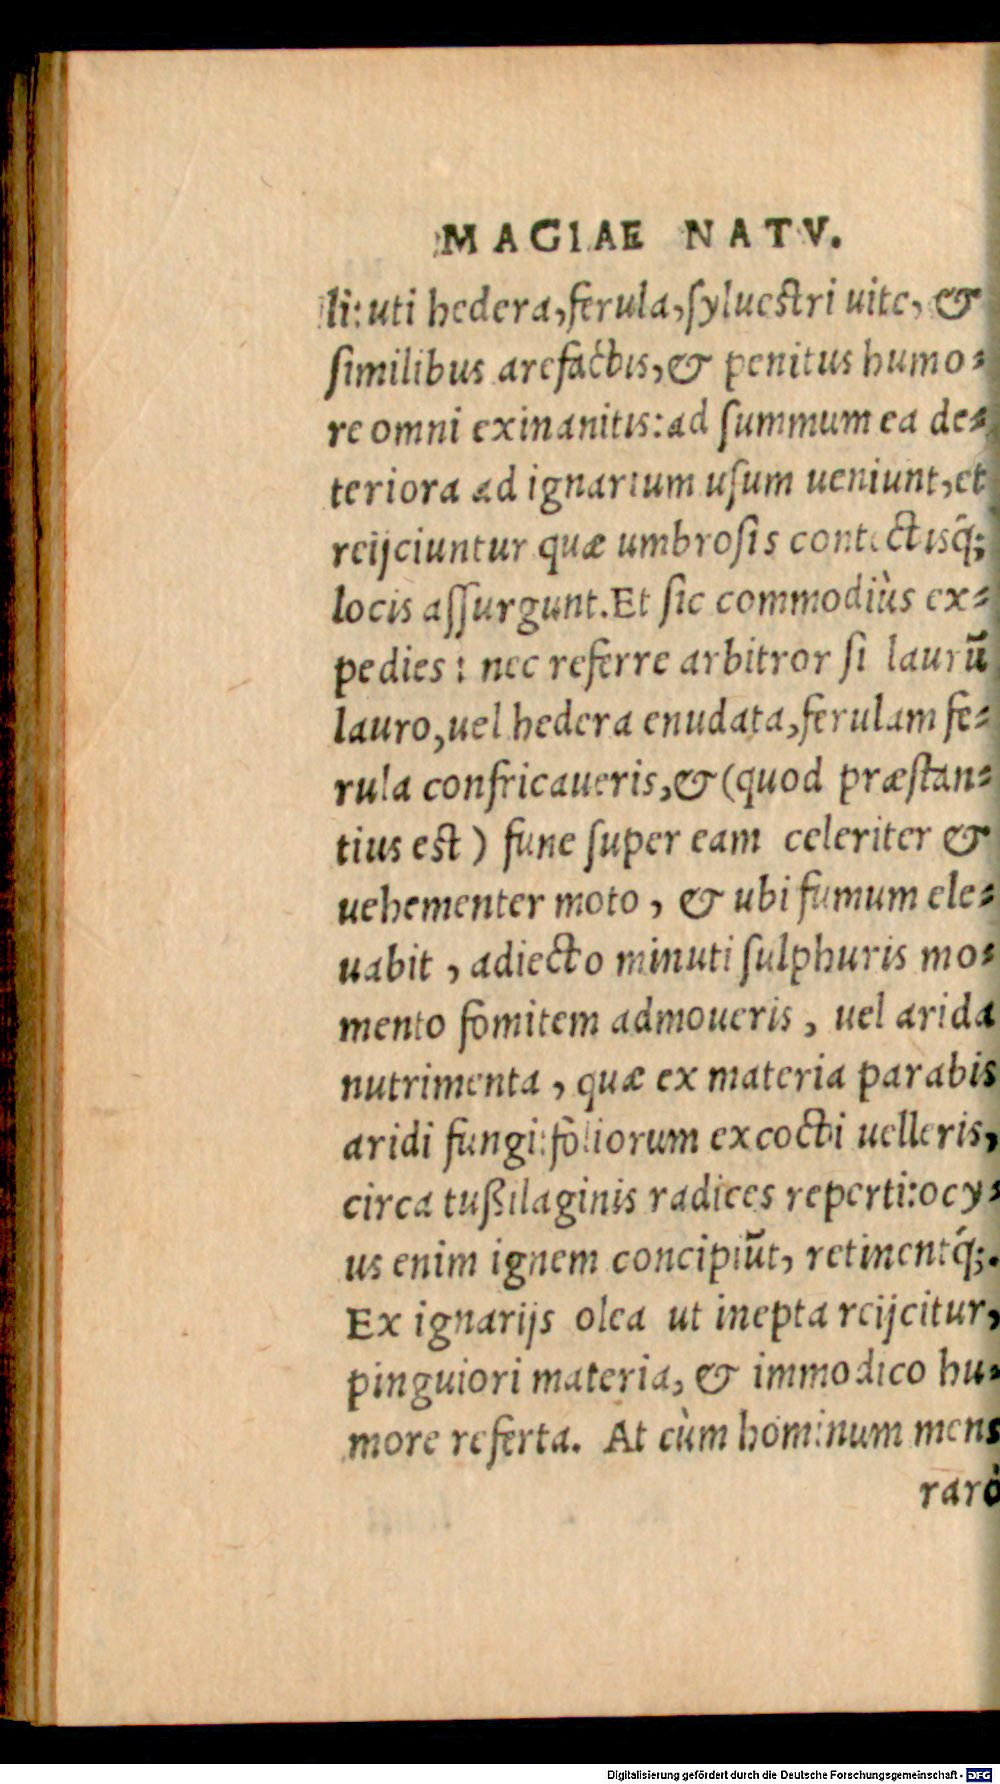 MAGIAE NATV.
li: uti hedera, ferula, ſylueſtri uite, &
ſimilibus arefactis, & penitus humo⸗
re omni exinanitis: ad ſummum ea de⸗
teriora ad ignarium uſum ueniunt, et
reijciuntur quæ umbroſis contectisq́;
locis aſſurgunt. Et ſic commodiùs ex⸗
pedies: nec referre arbitror ſi laurū
lauro, uel hedera enudata, ferulam fe⸗
rula confricaueris, & (quod præſtan⸗
tius eſt) fune ſuper eam celeriter &
uehementer moto, & ubi fumum ele⸗
uabit, adiecto minuti ſulphuris mo⸗
mento fomitem admoueris, uel arida
nutrimenta, quæ ex materia parabis
aridi fungi: foliorum excocti uelleris,
circa tußilaginis radices reperti: ocy⸗
us enim ignem concipiūt, retinentq́;.
Ex ignarijs olea ut inepta reijcitur,
pinguiori materia, & immodico hu⸗
more referta. At cùm hominum mens
rarò
Digitalisierung gefördert durch die Deutsche Forschungsgemeinschaft - DFG